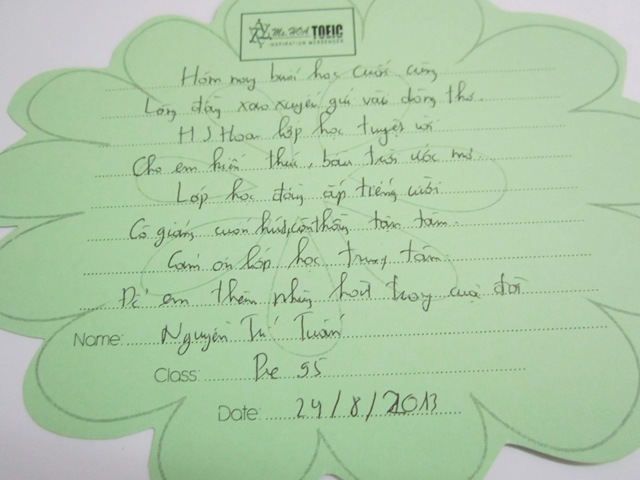 Ms. HOA TOEIC
INSPIRATION MESSENGER
Hôm nay buổi học cuối cùng
Lòng đầy xao xuyến gửi vài dòng thơ.
Hoa lớp học tuyệt vời
Cho em kiến thức, bầu trời ước mơ.
Lớp học đầy ắp tiếng cười
Cô giảng cuốn hút, còn thầy tận tâm.
Cám ơn lớp học trung tâm.
Để em thêm những hoài trong cuộc đời
Name: Nguyễn Trí Tuấn
Class: Pre 95
Date: 24/8/2013